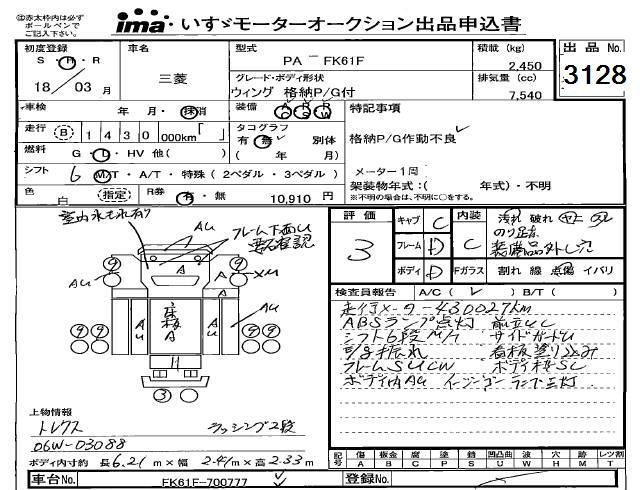 ㊟赤太枠内は必ず
ボールペンで
ご記入下さい。
ima いすゞモーターオークション出品申込書
初度登録
S・H・R
18/03月
車名
三菱
型式
PA－FK61F
積載(kg)
2,450
出品No.
3128
グレード・ボディ形状
ウィング 格納P/G付
排気量(cc)
7,540
車検 年・月・抹消
装備 A C R S R W
特記事項
格納P/G作動不良
メーター1周
架装物年式:( 年式)・不明
※不明の場合は、不明に○をする。
走行 B 1430 000km「 」
タコグラフ
有・無 別体
( 年 月)
燃料 G・D・HV 他( )
シフト 6 M/T・A/T・特殊(2ペダル・3ペダル)
色 白 指定
R券 有・無 10,910円
室内水もれ有り
フレーム下面U
要確認
AU
AU
XU
AU
AU
AU
A
A
床板A
H
9
9
9
9
9
9
3
上物情報
トレクス
ラッシング2段
06W-03088
ボディ内寸約 長6.21m×幅 2.41m×高2.33m
車台No. FK61F-700777
評価
3
キャブ C
フレーム D
ボディ D
内装 C
Fガラス
汚れ 破れ
のり跡
装備品外し穴
割れ 線 点傷 イバリ
検査員報告 A/C( ) B/T( )
走行メーター430027km
ABSランプ点灯
シフト6段M/T サイドガードU
看板塗り込み
フレームSUCW
ボディ内AU エンジンランプ点灯
記号 傷A 板金B 腐C 塗P 錆S 凹凸曲U 波W 穴H 跡M レツ割T
登録No.